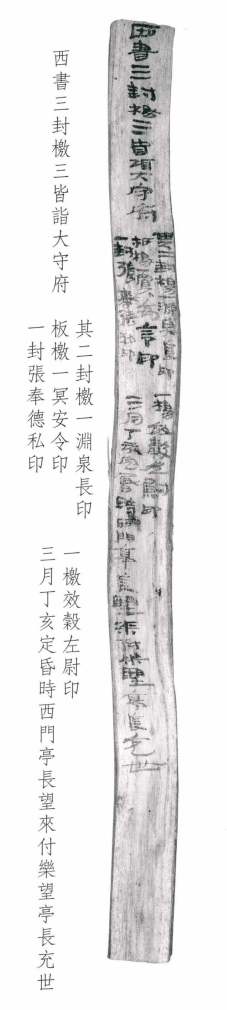 西書三封檄三皆詣大守府
其二封檄一淵泉長印
板檄一冥安令印
一封張奉德私印
一檄效穀左尉印
三月丁亥定昏時西門亭長望來付樂望亭長充世